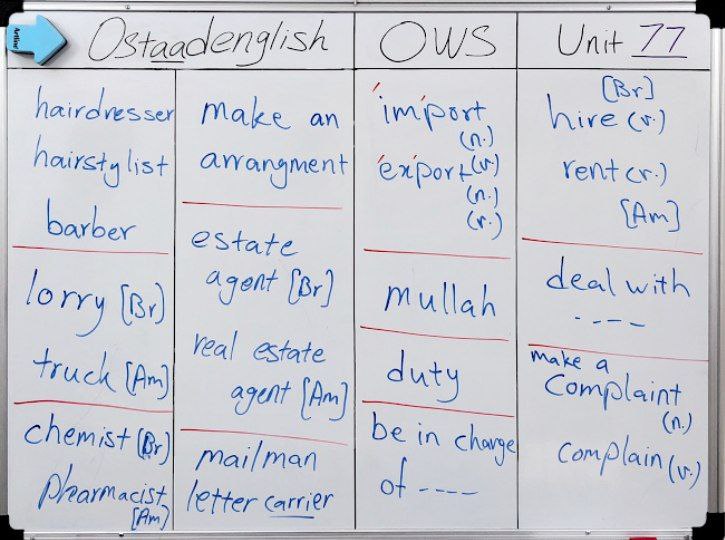 Ostaadenglish
OWS
Unit 77
hairdresser
hairstylist
barber
lorry [Br]
truck [Am]
chemist [Br]
pharmacist
[Am]
make an
arrangment
estate
agent [Br]
real estate
agent [Am]
mailman
letter carrier
import
(n.)
(v.)
export
(n.)
(v.)
mullah
duty
be in charge
of ----
[Br]
hire (v.)
rent (v.)
[Am]
deal with
----
make a
complaint
(n.)
complain (v.)